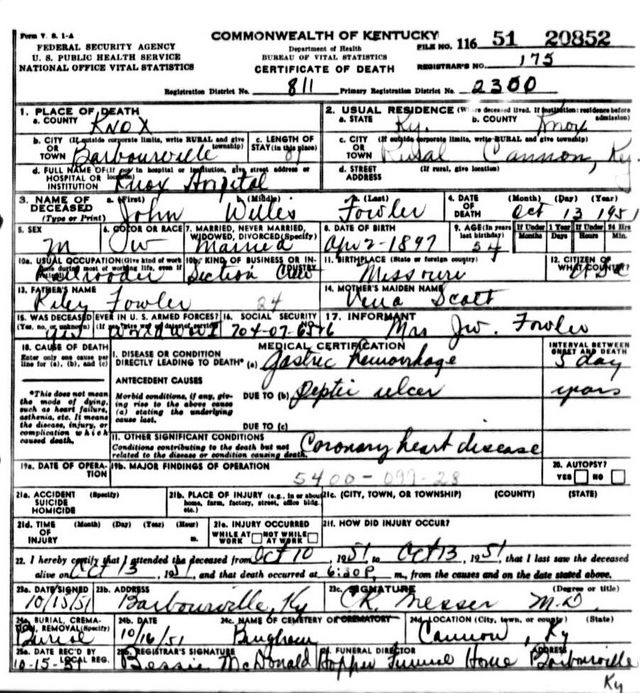 Form V. S. 1-A
COMMONWEALTH OF KENTUCKY
FEDERAL SECURITY AGENCY
U. S. PUBLIC HEALTH SERVICE
NATIONAL OFFICE VITAL STATISTICS
Department of Health
BUREAU OF VITAL STATISTICS
CERTIFICATE OF DEATH
FILE NO. 116 51 20852
REGISTRAR'S NO. 175
Registration District No. 811 Primary Registration District No. 2300
1. PLACE OF DEATH
a. COUNTY Knox
2. USUAL RESIDENCE (Where deceased lived. If institution: residence before admission)
a. STATE Ky. b. COUNTY Knox
b. CITY OR TOWN (If outside corporate limits, write RURAL and give township) Barbourville
c. LENGTH OF STAY (in this place)
c. CITY OR TOWN (If outside corporate limits, write RURAL and give township) Rural Cannon, Ky.
d. FULL NAME OF HOSPITAL OR INSTITUTION (If not in hospital or institution, give street address or location) Knox Hospital
d. STREET ADDRESS (If rural, give location)
3. NAME OF DECEASED (Type or Print)
a. (First) John b. (Middle) Willis c. (Last) Fowler
4. DATE OF DEATH (Month) (Day) (Year) Oct 13 1951
5. SEX M
6. COLOR OR RACE W
7. MARRIED, NEVER MARRIED, WIDOWED, DIVORCED (Specify) Married
8. DATE OF BIRTH Apr 2-1897
9. AGE (In years last birthday) 54
If Under 1 Year Months Days
If Under 24 Hrs Hours Min.
10a. USUAL OCCUPATION (Give kind of work done during most of working life, even if retired) Railroader
10b. KIND OF BUSINESS OR INDUSTRY Section Crew
11. BIRTHPLACE (State or foreign country) Missouri
12. CITIZEN OF WHAT COUNTRY? USA
13. FATHER'S NAME Riley Fowler 24
14. MOTHER'S MAIDEN NAME Scott
15. WAS DECEASED EVER IN U. S. ARMED FORCES? (Yes, no, or unknown) (If yes, give war or dates of service) World War I
16. SOCIAL SECURITY 704-07-6846
17. INFORMANT Mrs J.W. Fowler
18. CAUSE OF DEATH
Enter only one cause per line for (a), (b), and (c)
MEDICAL CERTIFICATION
INTERVAL BETWEEN ONSET AND DEATH
I. DISEASE OR CONDITION DIRECTLY LEADING TO DEATH* (a) Gastric hemorrhage day
*This does not mean the mode of dying, such as heart failure, asthenia, etc. It means the disease, injury, or complication which caused death.
ANTECEDENT CAUSES
Morbid conditions, if any, giving rise to the above cause (a) stating the underlying cause last.
DUE TO (b) Peptic ulcer years
DUE TO (c)
II. OTHER SIGNIFICANT CONDITIONS
Conditions contributing to the death but not related to the disease or condition causing death.
Coronary heart disease
19a. DATE OF OPERATION
19b. MAJOR FINDINGS OF OPERATION
5400-099-28
20. AUTOPSY?
YES NO
21a. ACCIDENT SUICIDE HOMICIDE (Specify)
21b. PLACE OF INJURY (e.g., in or about home, farm, factory, street, office bldg., etc.)
21c. (CITY, TOWN, OR TOWNSHIP) (COUNTY) (STATE)
21d. TIME OF INJURY (Month) (Day) (Year) (Hour) m.
21e. INJURY OCCURRED
WHILE AT WORK NOT WHILE AT WORK
21f. HOW DID INJURY OCCUR?
22. I hereby certify that I attended the deceased from Oct 10, 1951 to Oct 13, 1951, that I last saw the deceased
alive on Oct 13, 1951, and that death occurred at 6:30P. m., from the causes and on the date stated above.
23a. DATE SIGNED 10/15/51
23b. ADDRESS Barbourville, Ky
23c. SIGNATURE (Degree or title) C.R. Messer M.D.
24a. BURIAL, CREMATION, REMOVAL (Specify) Burial
24b. DATE 10/16/51
24c. NAME OF CEMETERY OR CREMATORY Bingham
24d. LOCATION (City, town, or county) (State) Cannon, Ky
25a. DATE REC'D BY LOCAL REG. 10-15-51
25b. REGISTRAR'S SIGNATURE Bessie McDonald
FUNERAL DIRECTOR ADDRESS Hopper Funeral Home Barbourville
Ky